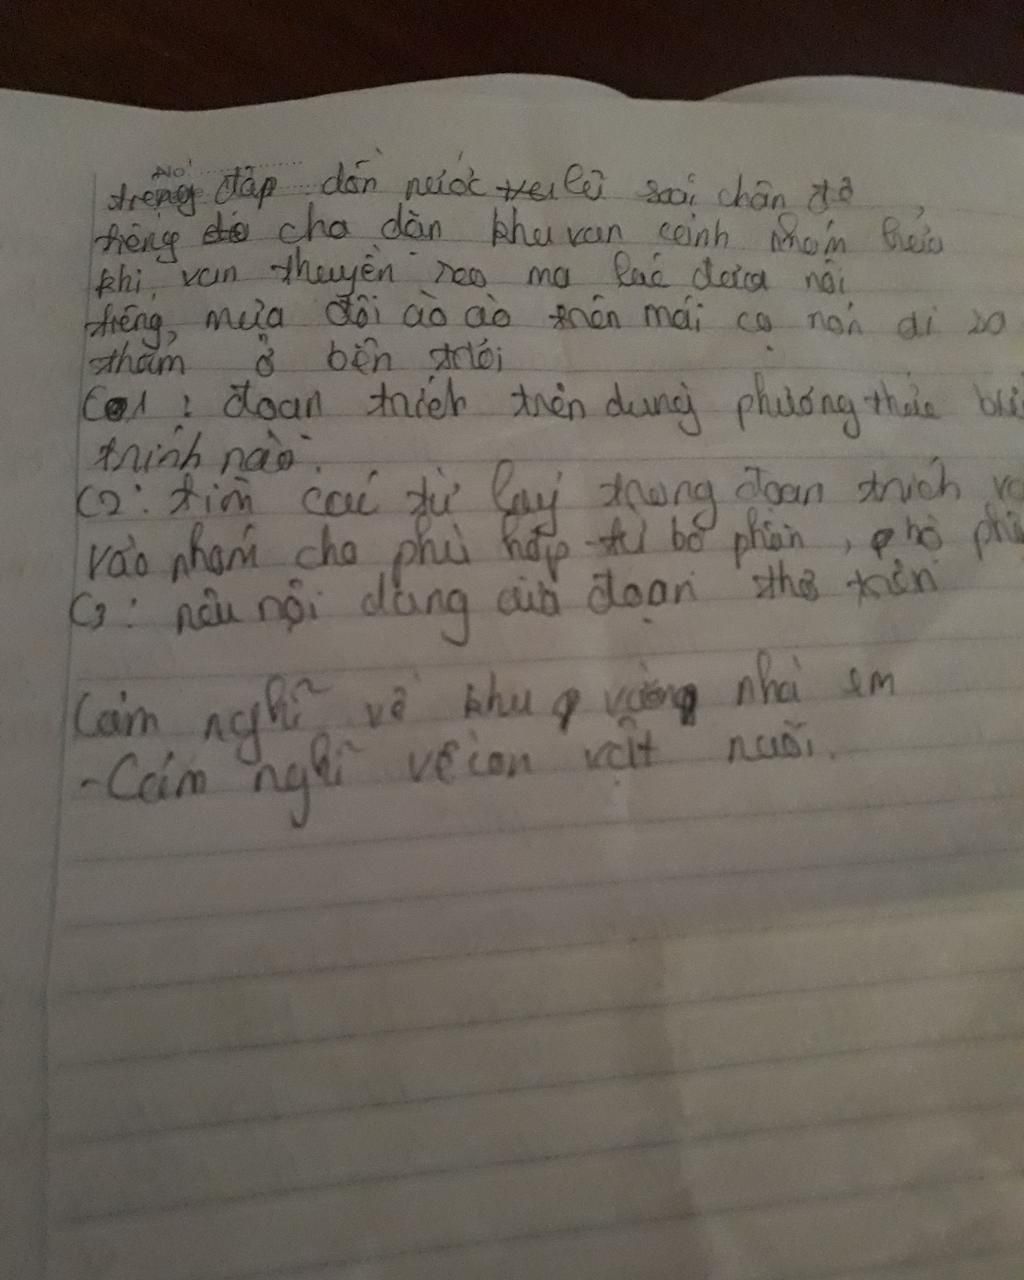 Nơi
đập dồn nước lũ xoi chân đê
tiếng cha dặn khu van cánh
khi van thuyền reo mo
tiếng, mưa đôi ào ào trên mái cọ nón đi
thăm ở bên trời
C1: đoạn trích trên dùng phương thức
trình nào?
C2: tìm các từ láy trong đoạn trích
vào nhóm cho phù hợp từ bộ phận,
C3: nêu nội dung của đoạn thơ trên
Cảm nghĩ về khu vườn nhà em
- Cảm nghĩ về con vật nuôi.